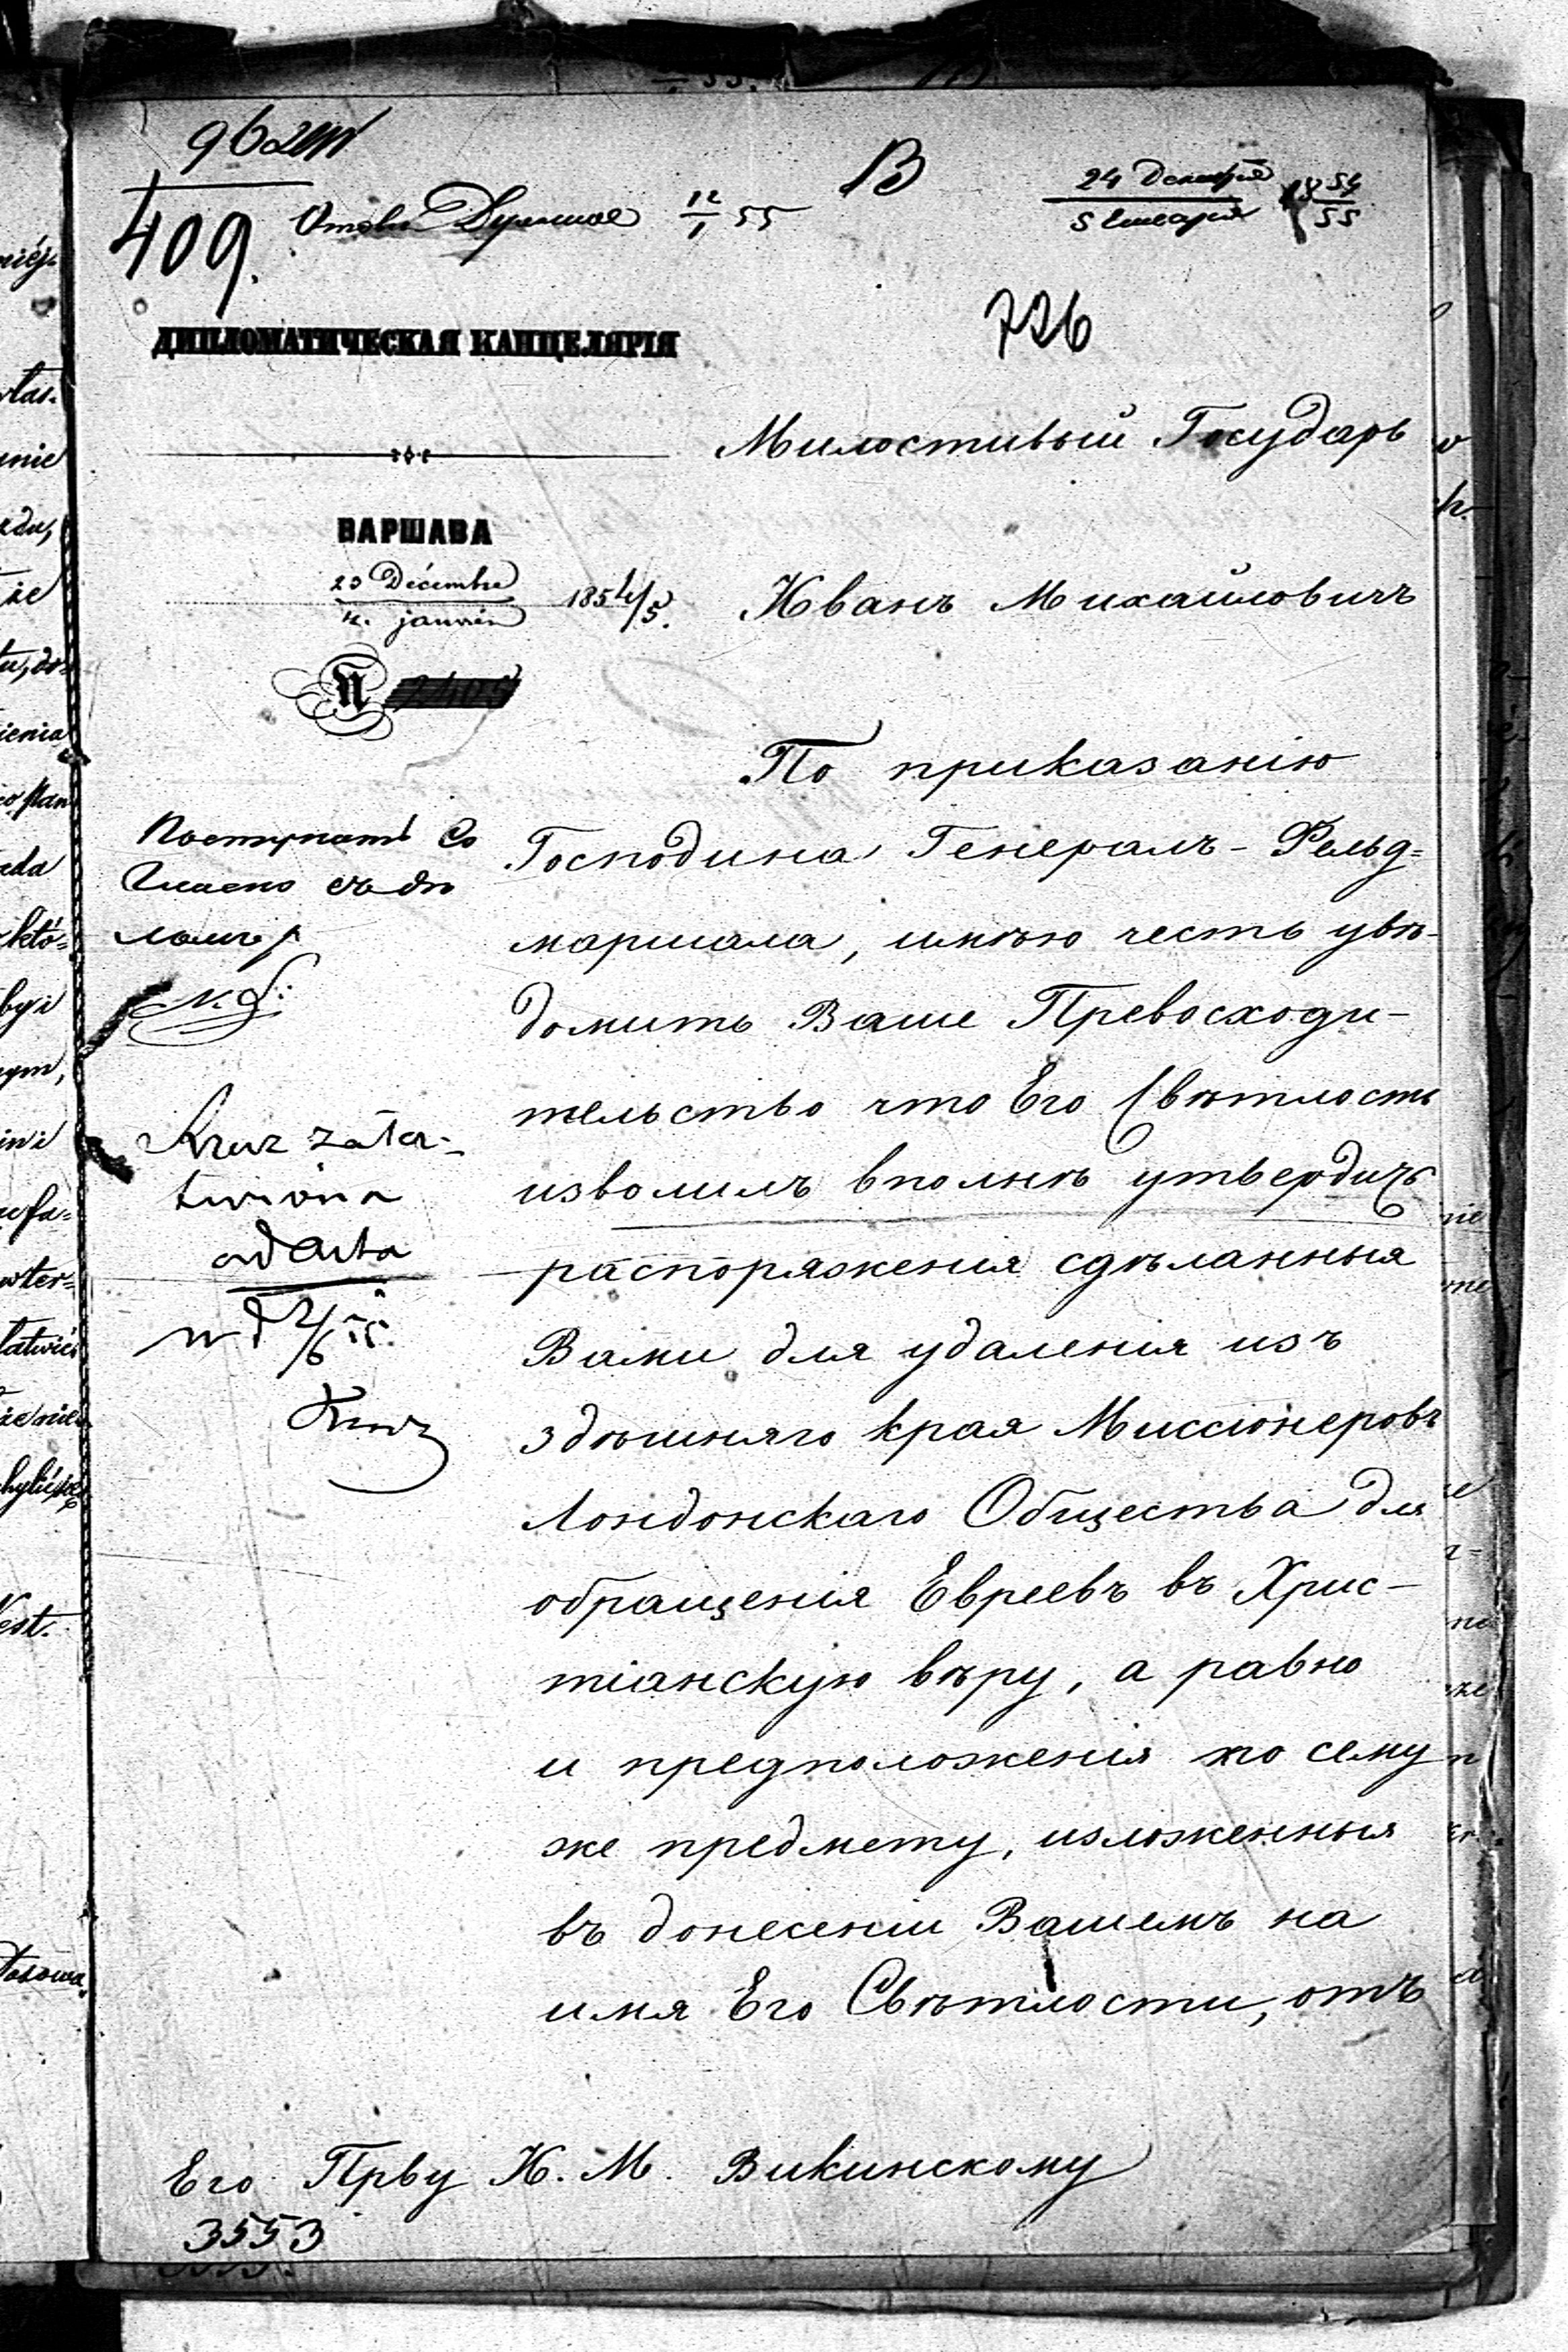 962
В
24 Декабря 1854
5 Января 55
409.
12/1 55
726
ДИПЛОМАТИЧЕСКАЯ КАНЦЕЛЯРІЯ
Милостивый Государь
ВАРШАВА
23 Décembre
4. janvier 1854/5.
Иванъ Михайловичъ
№
По приказанію
Господина Генералъ-Фельд=
маршала, имѣю честь увѣ-
домить Ваше Превосходи-
тельство что Его Свѣтлость
изволилъ вполнѣ утвердить
распоряженія сдѣланныя
Вами для удаленія изъ
здѣшняго края Миссіонеровъ
Лондонскаго Общества для
обращенія Евреевъ въ Хрис-
тіанскую вѣру, а равно
и предположенія по сему
же предмету, изложенныя
въ донесеніи Вашемъ на
имя Его Свѣтлости, отъ
ad acta
Его Прву И. М. Викинскому
3553